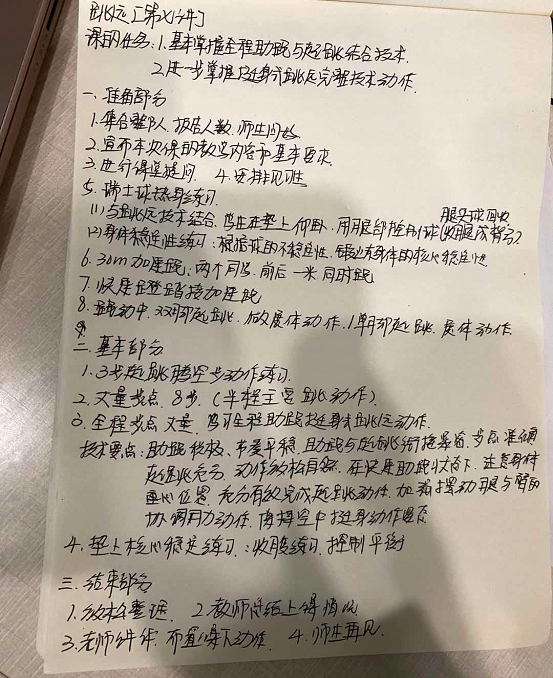 跳远[第次课]
课的任务:1.基本掌握全程助跑与起跳结合技术.
2.进一步掌握挺身式跳远完整技术动作.
一、准备部分
1.集合整队、报告人数、师生问好
2.宣布本次课的教学内容和基本要求.
3.进行课堂提问 4.安排见习生
5.瑞士球热身练习.
(1)与跳远技术结合,学生在垫上仰卧,用腿部控制球(收腹成背弓)
(2)身体稳定性练习:根据球的不稳定性,锻炼身体的核心稳定性
6.30m加速跑:两个同学、前后一米、同时跑
7.快速蹬踏接加速跑
8.跑动中,双脚起跳,做展体动作,1单脚起跳,展体动作.
二.基本部分
1.3步起跳腾空步动作练习.
2.丈量步点 8步.(半程主要跳动作).
3.全程步点丈量 学习全程助跑挺身式跳远动作.
技术要点:助跑积极、节奏平稳,助跑与起跳衔接紧密,步点准确
起跳充分,动作放松自然.在快速助跑状态下,注意身体
重心位置,充分有效完成起跳动作.加强摆动腿与臂的
协调用力动作,保持空中挺身动作
4.垫上核心稳定练习:收腹练习,控制平衡
三.结束部分
1.放松整理. 2.教师总结上课情况
3.老师 布置课下动作. 4.师生再见.